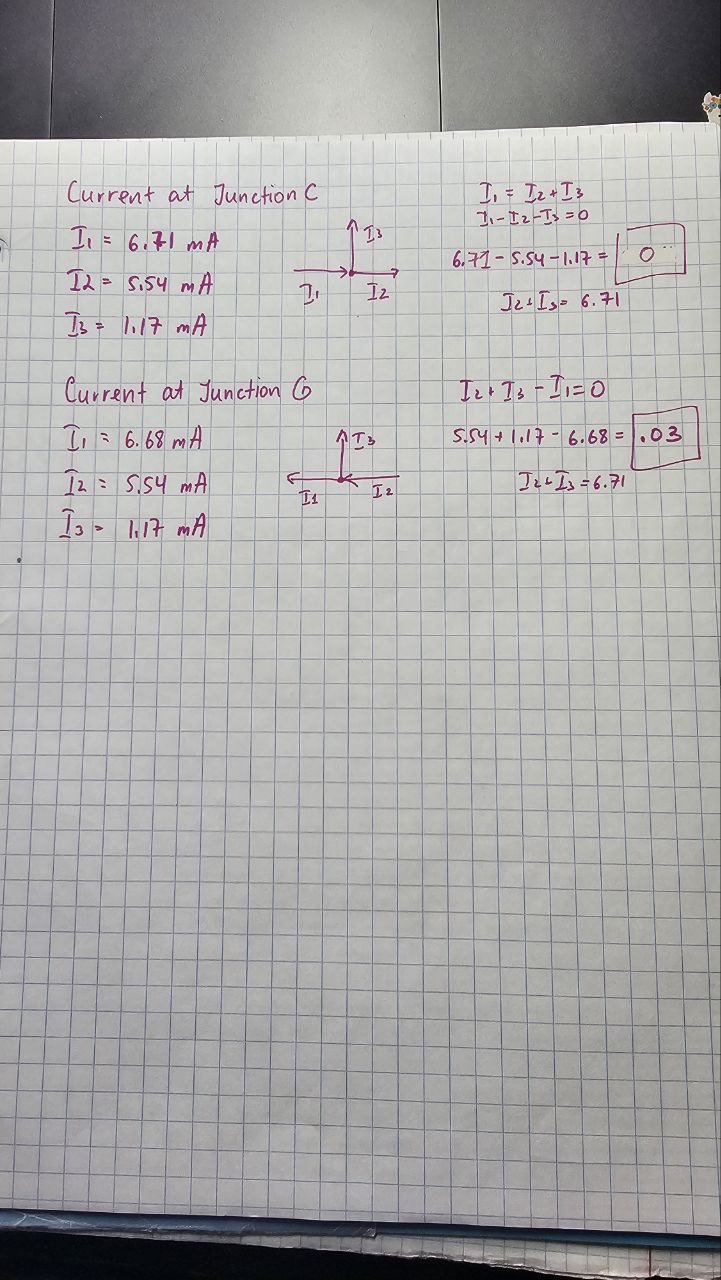 Current at Junction C
I1 = 6.71 mA
I2 = 5.54 mA
I3 = 1.17 mA
I3
I1
I2
I1 = I2 + I3
I1 - I2 - I3 = 0
6.71 - 5.54 - 1.17 = 0
I2 + I3 = 6.71
Current at Junction G
I1 = 6.68 mA
I2 = 5.54 mA
I3 = 1.17 mA
I3
I1
I2
I2 + I3 - I1 = 0
5.54 + 1.17 - 6.68 = .03
I2 + I3 = 6.71